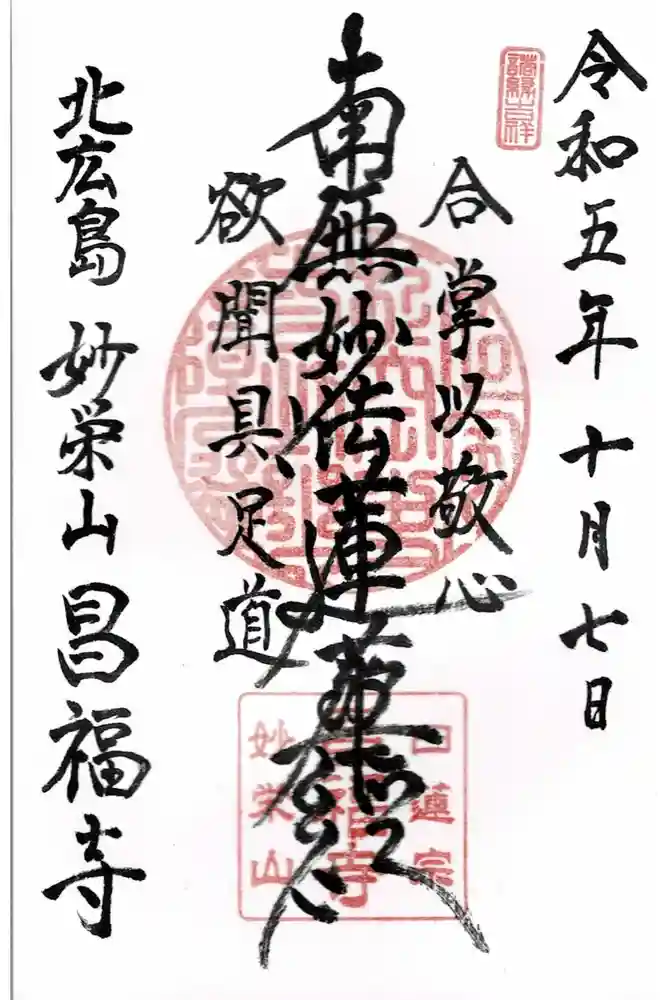 令和五年 十月七日
合掌以敬心
南無妙法蓮華経
欲聞具足道
北広島 妙栄山 昌福寺
日蓮宗
昌福寺
妙栄山